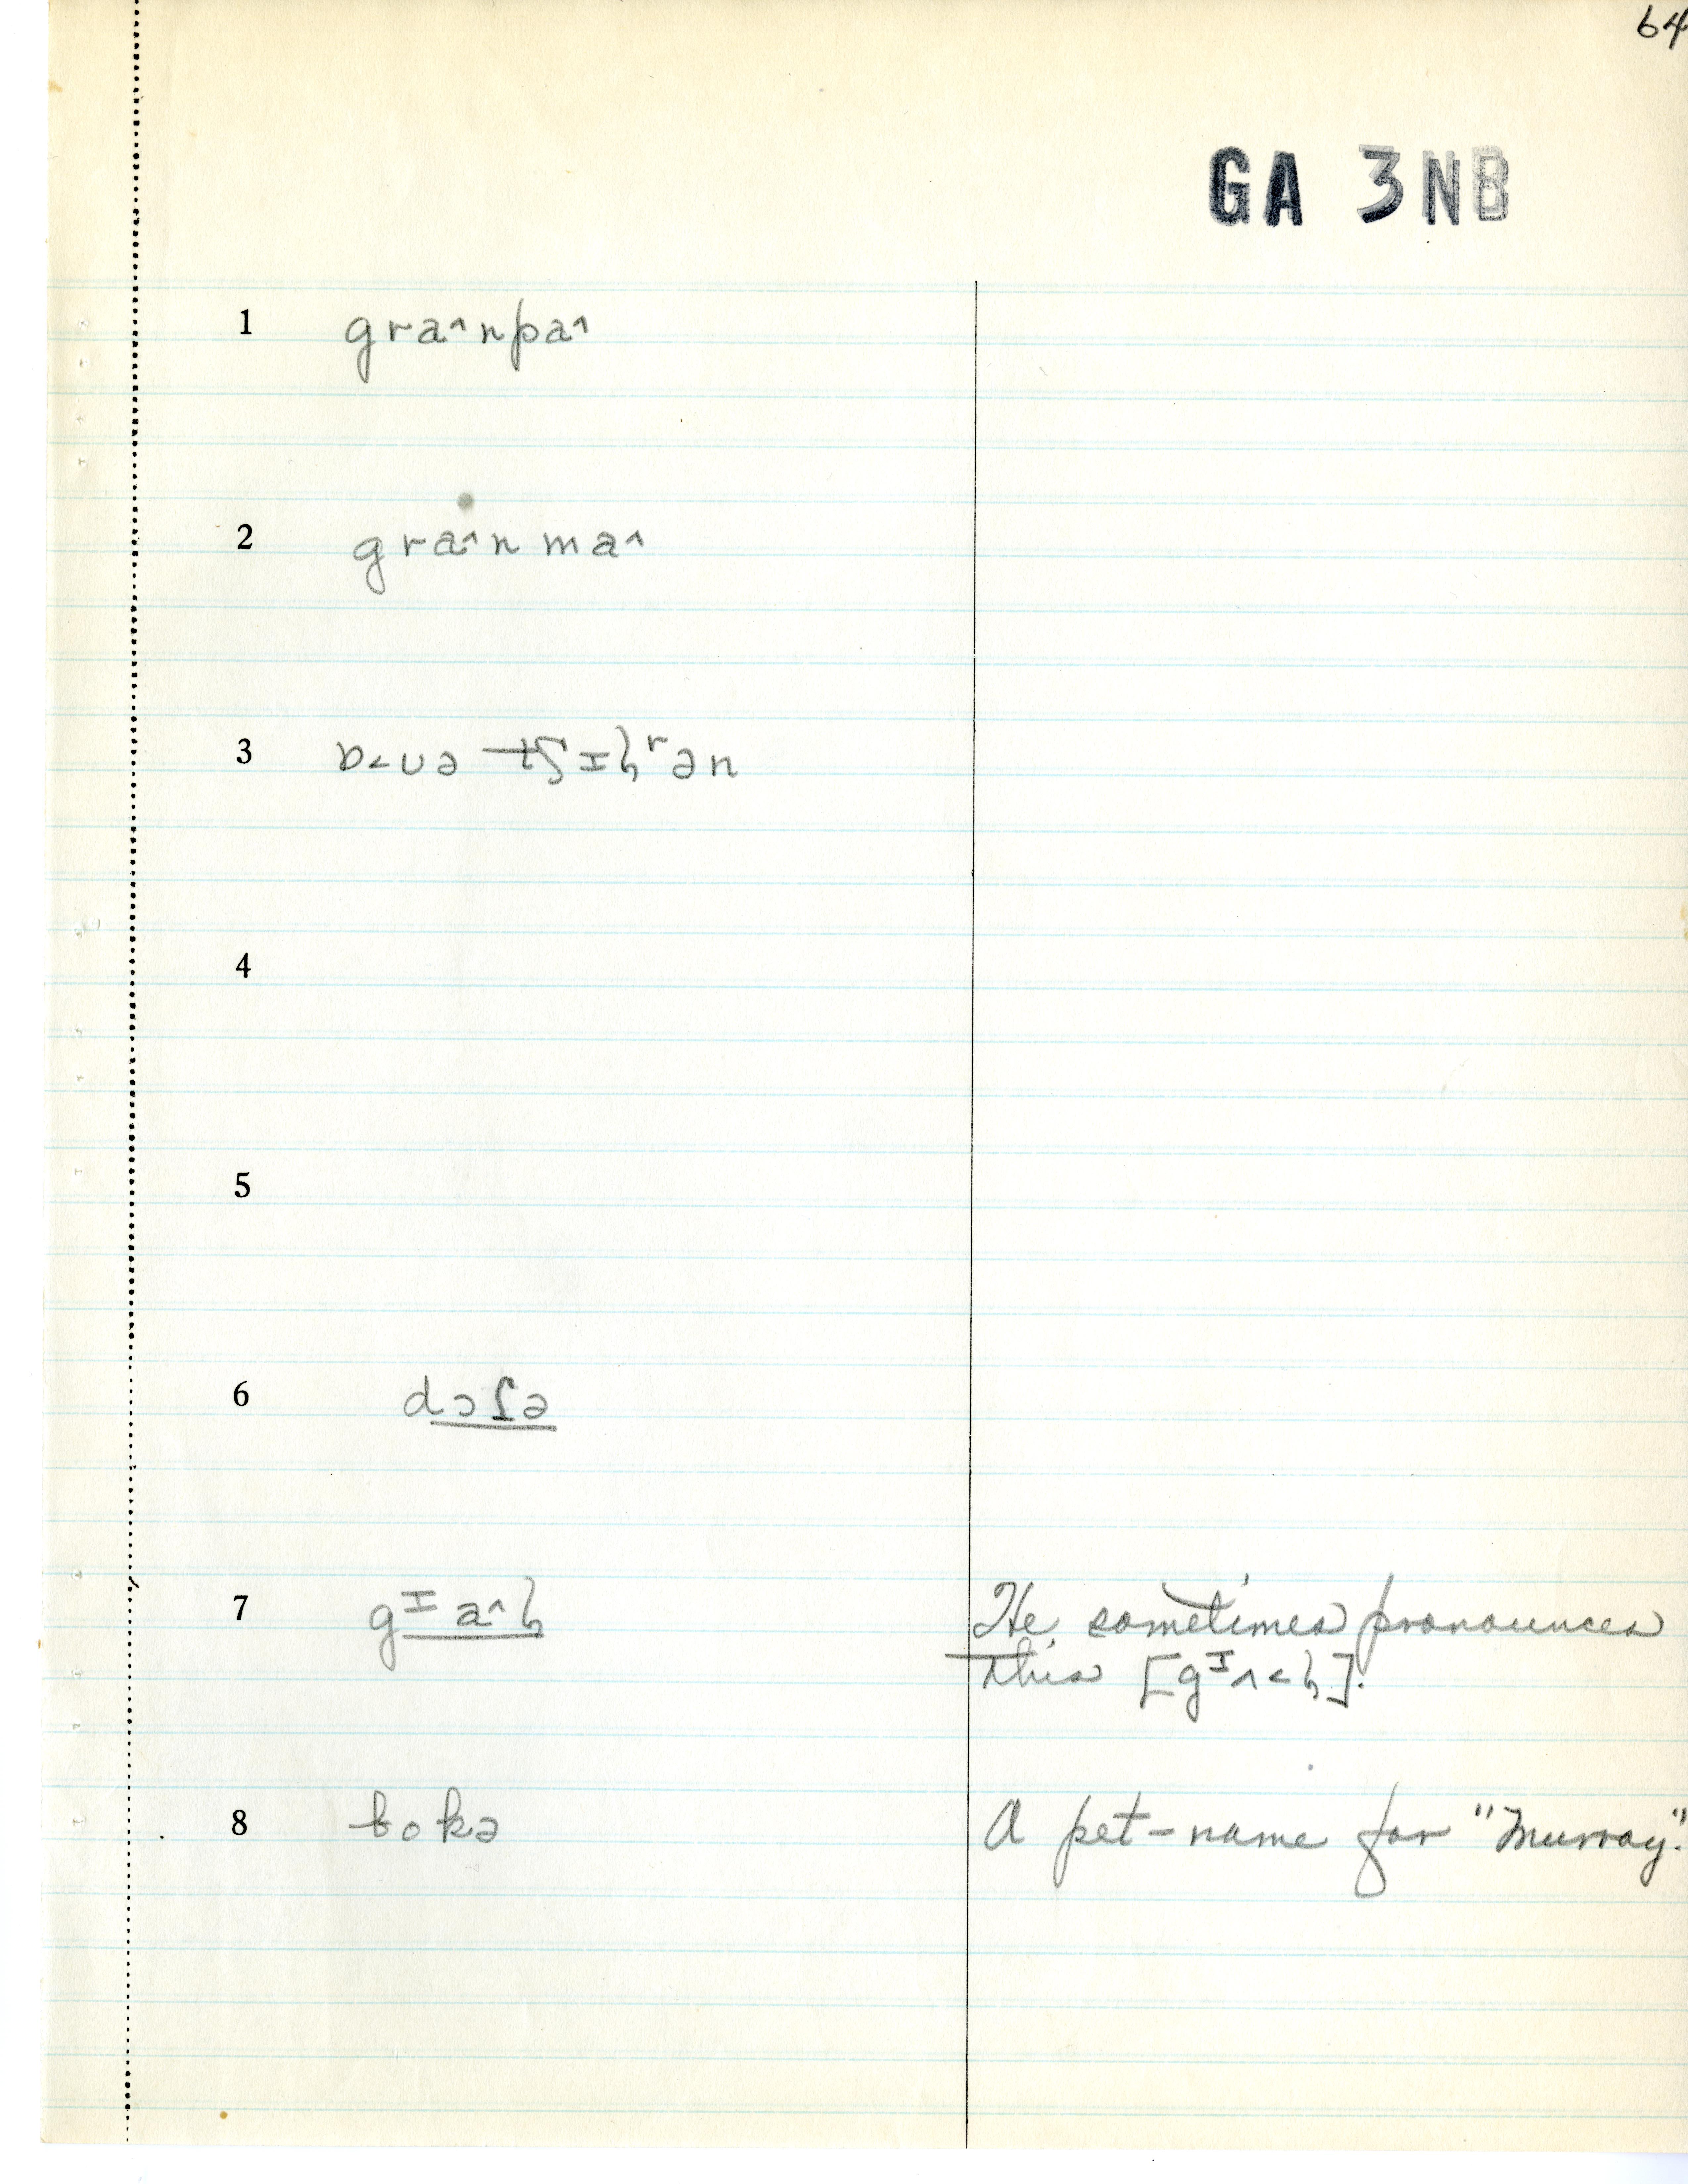 64
GA 3NB
1 gra^npa^
2 gra^nma^
3 ɒ˂ʊə tʃɪɫʳən
4
5
6 dɔʃə
7 gᶦa^ɫ
He sometimes pronounces
this [gᶦʌ˂ɫ].
8 bokə
A pet-name for "Murray".